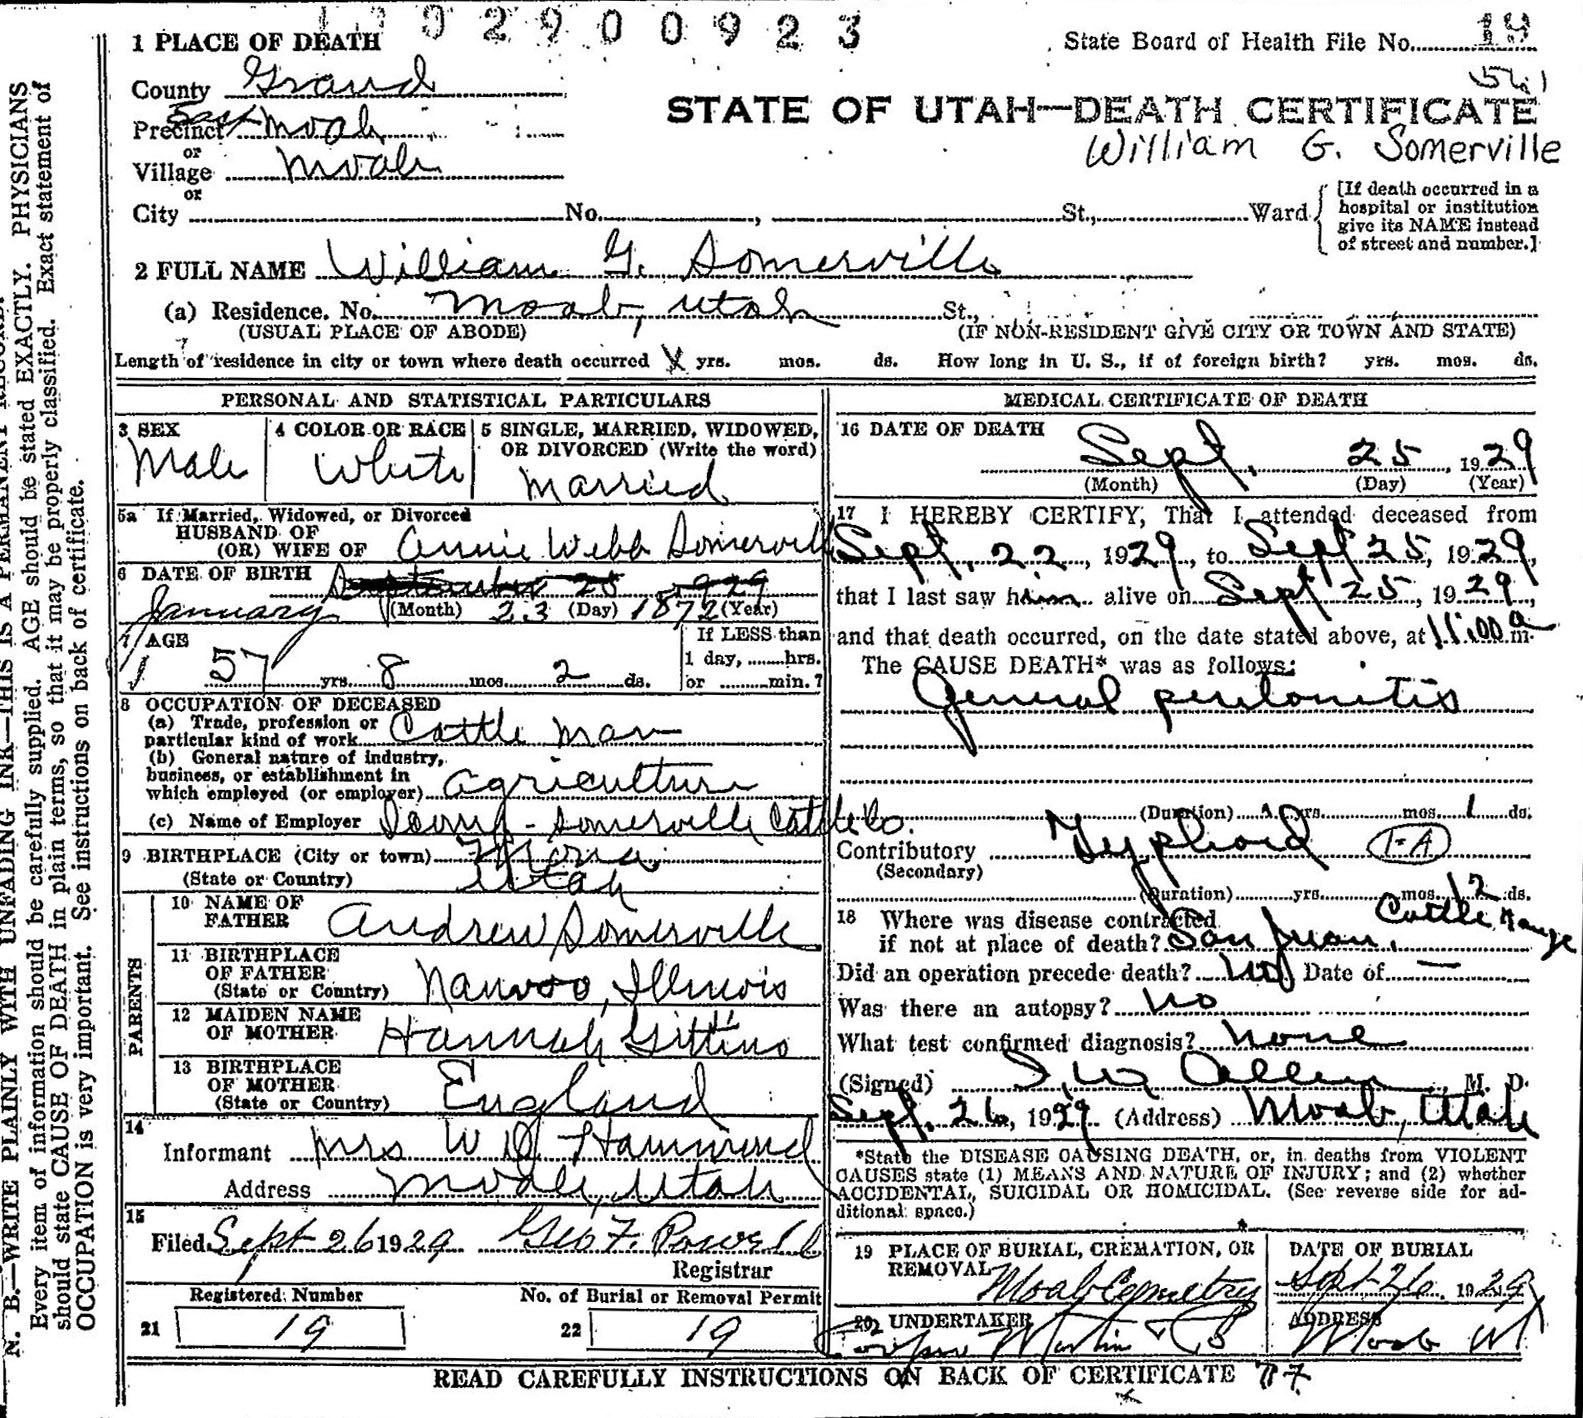 1 9 2 9 0 0 9 2 3
1 PLACE OF DEATH
State Board of Health File No. 19
County Grand
541
STATE OF UTAH—DEATH CERTIFICATE
Precinct East Moab
William G. Somerville
or
Village Moab
or
City No. , St., Ward
[If death occurred in a
hospital or institution
give its NAME instead
of street and number.]
2 FULL NAME William G. Somerville
(a) Residence. No. Moab, Utah St.,
(USUAL PLACE OF ABODE) (IF NON-RESIDENT GIVE CITY OR TOWN AND STATE)
Length of residence in city or town where death occurred X yrs. mos. ds. How long in U. S., if of foreign birth? yrs. mos. ds.
PERSONAL AND STATISTICAL PARTICULARS
3 SEX
Male
4 COLOR OR RACE
White
5 SINGLE, MARRIED, WIDOWED,
OR DIVORCED (Write the word)
Married
5a If Married, Widowed, or Divorced
HUSBAND OF
(OR) WIFE OF Annie Webb Somerville
6 DATE OF BIRTH September 25 1929
January (Month) 23 (Day) 1872 (Year)
7 AGE
57 yrs. 8 mos. 2 ds.
If LESS than
1 day, hrs.
or min.?
8 OCCUPATION OF DECEASED
(a) Trade, profession or
particular kind of work Cattle Man
(b) General nature of industry,
business, or establishment in
which employed (or employer) Agriculture
(c) Name of Employer Scorup-Somerville Cattle Co.
9 BIRTHPLACE (City or town) Mona
(State or Country) Utah
PARENTS
10 NAME OF
FATHER Andrew Somerville
11 BIRTHPLACE
OF FATHER
(State or Country) Nauvoo, Illinois
12 MAIDEN NAME
OF MOTHER Hannah Gittins
13 BIRTHPLACE
OF MOTHER
(State or Country) England
14
Informant Mrs W D Hammond
Address Moab, Utah
15
Filed Sept 26 1929 Geo F. Powell
Registrar
Registered Number
21 19
No. of Burial or Removal Permit
22 19
MEDICAL CERTIFICATE OF DEATH
16 DATE OF DEATH
Sept. 25, 1929
(Month) (Day) (Year)
17 I HEREBY CERTIFY, That I attended deceased from
Sept. 22, 1929, to Sept 25, 1929,
that I last saw him alive on Sept 25, 1929,
and that death occurred, on the date stated above, at 11:00 a m.
The CAUSE DEATH* was as follows:
General peritonitis
(Duration) yrs. mos. 1 ds.
Contributory Typhoid 1-A
(Secondary)
(Duration) yrs. mos. 12 ds.
18 Where was disease contracted
if not at place of death? San Juan, Cattle Range
Did an operation precede death? No Date of —
Was there an autopsy? No
What test confirmed diagnosis? None
(Signed) I W Allen, M. D.
Sept. 26, 1929 (Address) Moab, Utah
*State the DISEASE CAUSING DEATH, or, in deaths from VIOLENT
CAUSES state (1) MEANS AND NATURE OF INJURY; and (2) whether
ACCIDENTAL, SUICIDAL OR HOMICIDAL. (See reverse side for ad-
ditional space.)
19 PLACE OF BURIAL, CREMATION, OR
REMOVAL Moab Cemetery
DATE OF BURIAL
Sept 26, 1929
20 UNDERTAKER
Martin
ADDRESS
Moab Ut
READ CAREFULLY INSTRUCTIONS ON BACK OF CERTIFICATE 77
N. B.—WRITE PLAINLY WITH UNFADING INK—THIS IS A PERMANENT RECORD.
Every item of information should be carefully supplied. AGE should be stated EXACTLY. PHYSICIANS
should state CAUSE OF DEATH in plain terms, so that it may be properly classified. Exact statement of
OCCUPATION is very important. See instructions on back of certificate.